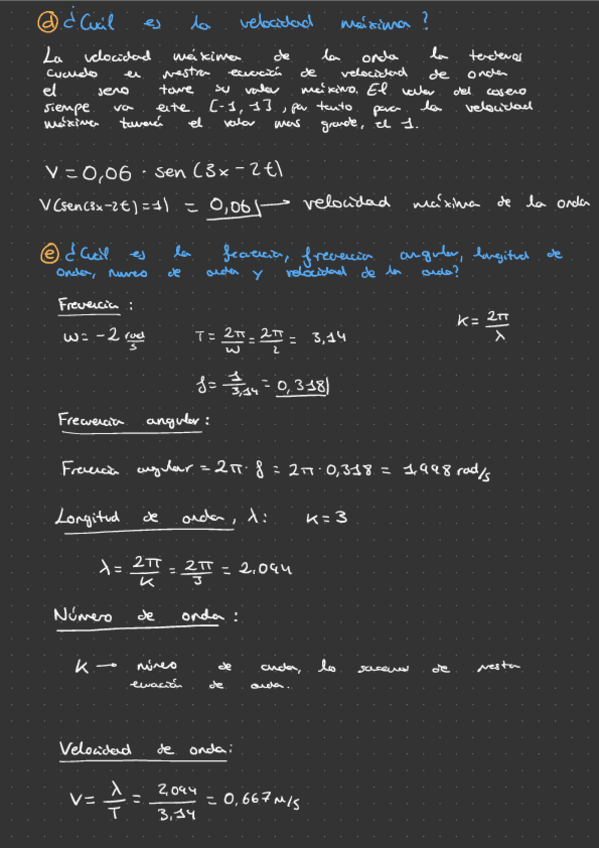 d) ¿Cuál es la velocidad máxima?
La velocidad máxima de la onda la tendremos
cuando en nuestra ecuación de velocidad de onda
el seno tome su valor máximo. El valor del coseno
siempre va entre [-1, 1], por tanto para la velocidad
máxima tomará el valor mas grande, el 1.
V = 0,06 · sen (3x - 2t)
V(sen(3x-2t) = 1) = 0,06 → velocidad máxima de la onda
e) ¿Cuál es la frecuencia, frecuencia angular, longitud de
onda, número de onda y velocidad de la onda?
Frecuencia:
ω = -2 rad/s T = 2π/ω = 2π/2 = 3,14 K = 2π/λ
f = 1/3,14 = 0,318
Frecuencia angular:
Frecuencia angular = 2π · f = 2π · 0,318 = 1,998 rad/s
Longitud de onda, λ: K = 3
λ = 2π/K = 2π/3 = 2.094
Número de onda:
K → número de onda, lo sacamos de nuestra
ecuación de onda.
Velocidad de onda:
V = λ/T = 2,094/3,14 = 0,667 m/s